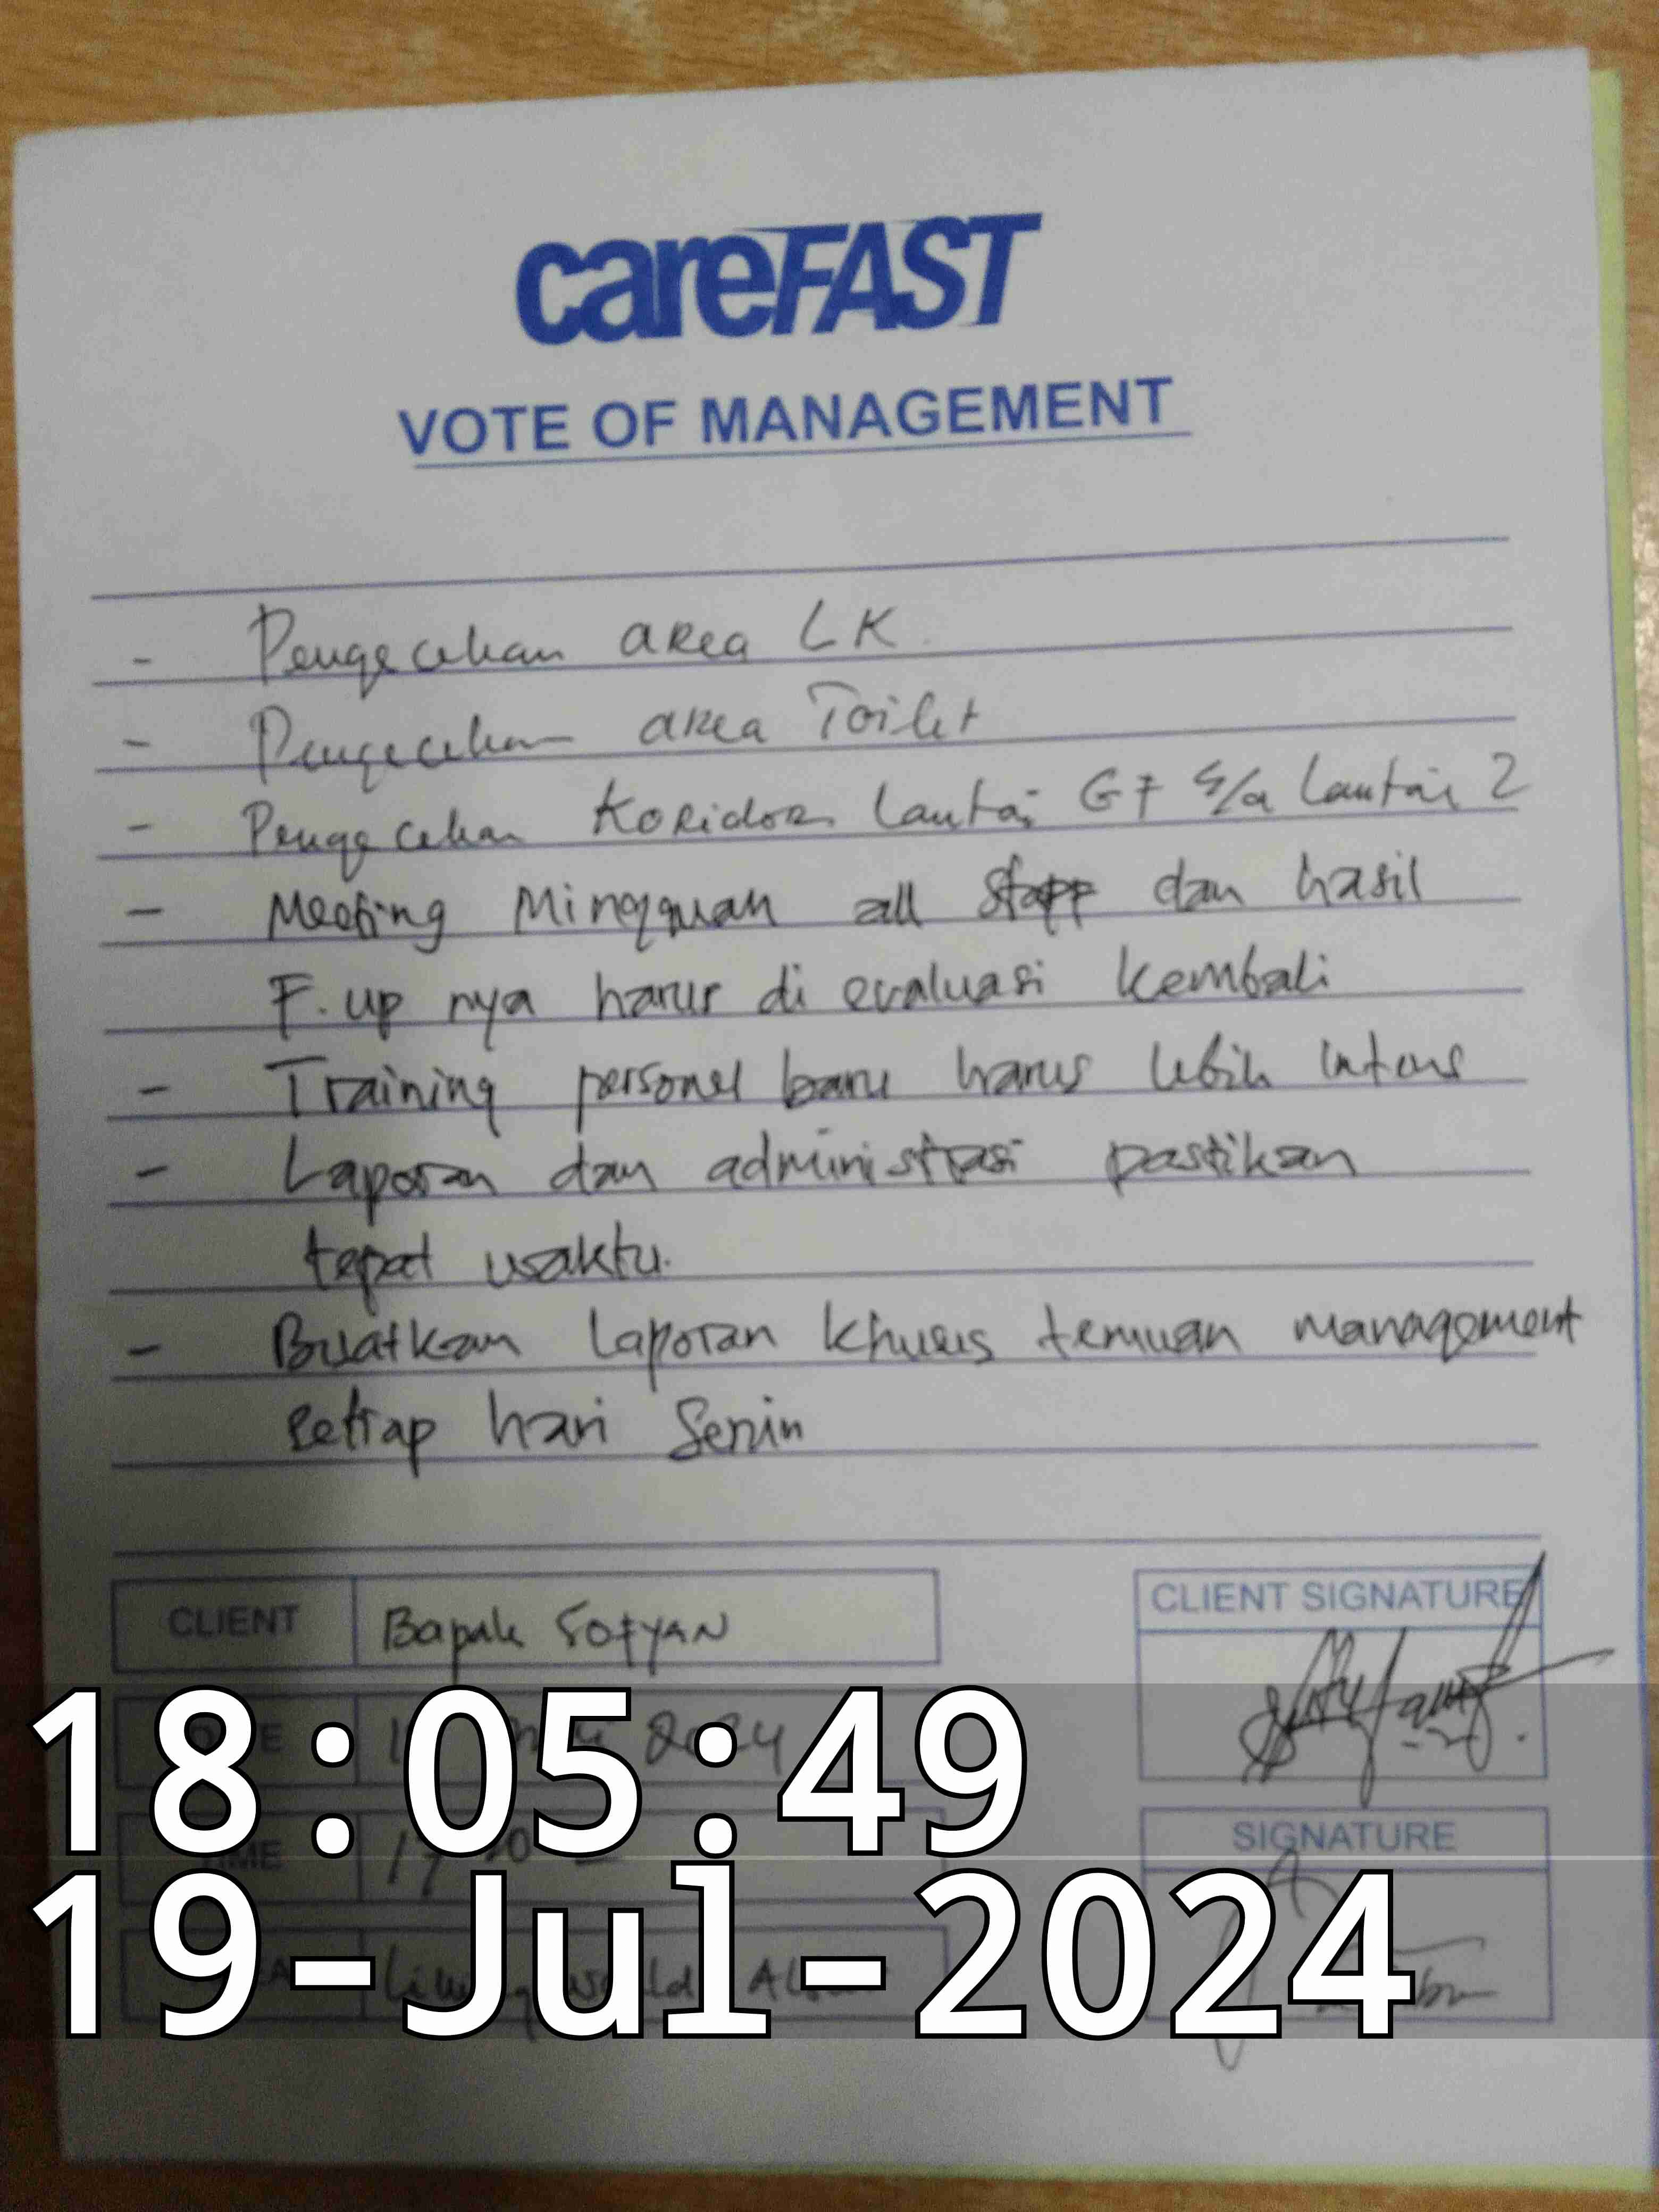 careFAST
VOTE OF MANAGEMENT
- Pengecekan area LK.
- Pengecekan area Toilet
- Pengecekan Koridor Lantai GF s/d Lantai 2
- Meeting Mingguan all staff dan hasil
F. up nya harus di evaluasi kembali
- Training personel baru harus lebih intens
- Laporan dan administrasi pastikan
tepat waktu.
- Buatkan laporan khusus temuan management
setiap hari Senin
CLIENT Bapak Sofyan
CLIENT SIGNATURE
2024
SIGNATURE
18:05:49
19-Jul-2024